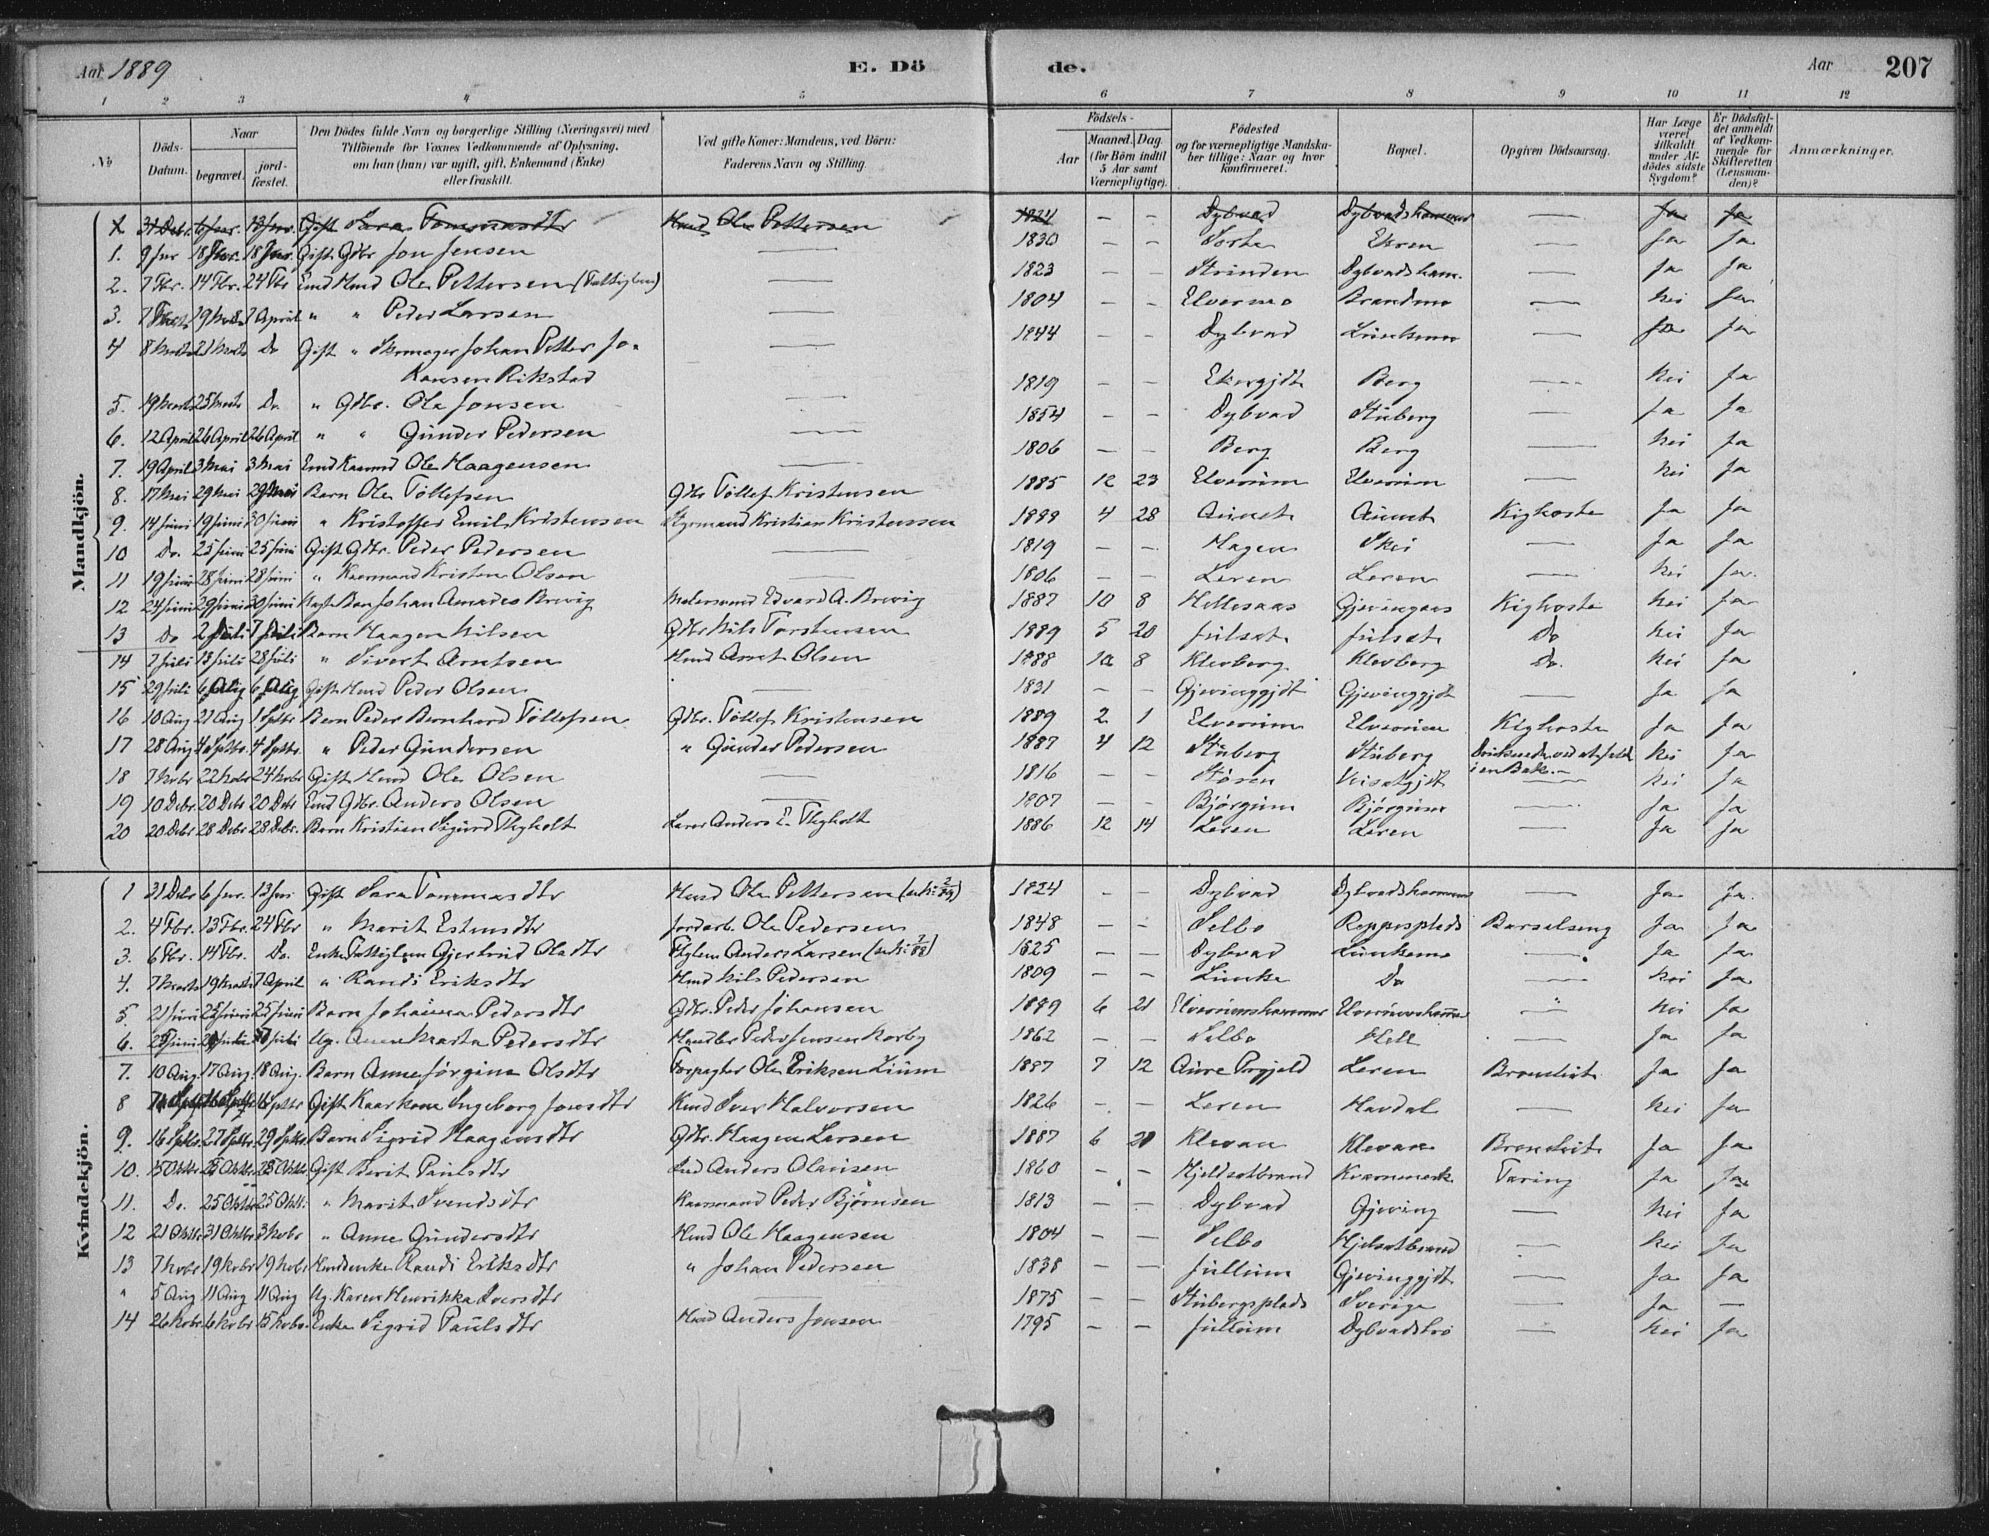 Aar 1889
E. Dö
de.
Aar
207
1 2 3 4 5 6 7 8 9 10 11 12
№
Döds-Datum.
Naar
begravet.
jordfæstet.
Den Dödes fulde Navn og borgerlige Stilling (Næringsvei) med
Tilföiende for Voxnes Vedkommende af Oplysning,
om han (hun) var ugift, gift, Enkemand (Enke)
eller fraskilt.
Ved gifte Koner: Mandens, ved Börn:
Faderens Navn og Stilling.
Födsels-
Aar
Maaned. Dag.
(for Börn indtil
5 Aar samt
Værnepligtige).
Födested
og for værnepligtige Mandska-
ber tillige: Naar og hvor
konfirmeret.
Bopæl.
Opgiven Dödsaarsag.
Har Læge
været
tilkaldt
under Af-
dödes sidste
Sygdom?
Er Dödsfal-
det anmeldt
af Vedkom-
mende for
Skifteretten
(Lensman-
den)?
Anmærkninger.
Mandkjön.
1 31 Debr. 6 Janr. 13 Janr. Gift Sara Tommasdtr Hmd Ole Pettersen 1824 — — Dybvad Dybvadshammer — Ja Ja
1. 9 Jnr 18 Jnr. Gift Gdbr Jon Jensen — 1830 — — Sorte Ekren — Ja Ja
2. 7 Fbr. 14 Fbr. 24 Fbr Emd Hmd Ole Pettersen (Fattiglem) — 1823 — — Strinden Dybvadsham. — Ja Ja
3. 7 19 7 April " " Peder Larsen — 1804 — — Elvermo Brandmo — Nei Ja
4 8 Marts 21 Marts Do Gift " Skomager Johan Petter Jo-
hansen Rikstad — 1844 — — Dybvad — Ja Ja
5. 19 Marts 25 Marts Do " Gdbr. Ole Jonsen — 1819 — — Berg — Nei Ja
6. 12 April 26 April 26 April " " Gunder Pedersen — 1854 — — Dybvad Stuberg — Ja Ja
7. 19 April 3 Mai 3 Mai Emd Kaarmd Ole Haagensen — 1806 — — Berg Berg — Nei Ja
8. 17 Mai 29 Mai 29 Mai Barn Ole Tollefsen Gdbr Tollef Kristensen 1885 12 23 Elverum Elverum — Nei Ja
9. 14 Juni 19 Juni 30 Juni " Kristoffer Emil Kristensen Styrmand Kristian Kristenssen 1888 4 28 Aunet Aunet Kighoste Ja Ja
10 Do. 25 Juni 25 Juni Gift Gdbr. Peder Pedersen — 1819 — — Hagen Skei — Ja Ja
11 19 Juni 28 Juni 28 Juni " Kaarmand Kristen Olsen — 1806 — — Leren Leren — Nei Ja
12 24 Juni 29 Juni 30 Juni Barn Johan Amadeo Brevig Edvard A. Brevig 1887 10 8 Hellesaas Gjevingaas Kighoste Nei Ja
13 Do 2 Juli 7 Juli Barn Haagen Nilsen Gdbr Nils Torstensen 1889 5 20 Julset Julset Do Nei Ja
14 7 Juli 13 Juli 28 Juli " Sivert Arntsen Hmd Arnt Olsen 1888 10 8 Klevberg Klevberg Do. Nei Ja
15 29 Juli 6 Aug 6 Aug Gift Hmd Peder Olsen — 1831 — — Gjevinggjdt Gjevinggjdt — Ja Ja
16 10 Aug 21 Aug 1 Septbr Barn Peder Bernhard Tollefsen Gdbr. Tollef Kristensen 1889 2 1 Elverum Elverum Kighoste Ja Ja
17 28 Aug 4 Septbr. 4 Septbr. " Peder Gundersen " Gunder Pedersen 1887 4 12 Stuberg Stuberg Druknede ved at falde
i en Bæk. Nei Ja
18 7 Nobr 22 Nobr 24 Nobr Gift Hmd Ole Olsen — 1816 — — Støren — Nei Ja
19 10 Debr. 20 Debr 20 Debr Emd Gdbr. Anders Olsen — 1807 — — Bjørgum Bjørgum — Ja Ja
20 20 Debr 28 Debr 28 Debr. Barn Kristian Sigurd Thyholt Lærer Anders E. Thyholt 1886 12 14 Leren Leren — Ja Ja
Kvindekjön.
1 31 Debr 6 Jnr. 13 Jnr Gift Sara Tommasdtr Hmd Ole Pettersen 1824 — — Dybvad Dybvadshammer — Ja Ja
2. 4 Fbr. 13 Fbr. 24 Fbr " Marit Estensdtr Jordarb. Ole Pedersen 1848 — — Selbo Reppesplads Barselseng Ja Ja
3. 6 Fbr. 14 Fbr. Do. Enke Fattiglem Gjertrud Olsdtr Anders Larsen 1825 — — Dybvad — Ja Ja
4. 7 Marts 19 Marts 7 April " Randi Eriksdtr Hmd Nils Pedersen 1809 — — Do — Nei Ja
5. 21 Juni 25 Juni 25 Juni Barn Johanna Pedersdtr Gdbr. Peder Johansen 1889 6 21 Elverumshammer Elverumshammer " Nei Ja
6. 25 Juni Juli Ug. Anna Marta Pedersdtr Handler Peder Jensen Norby 1862 — — Selbo Hell — Ja Ja
7. 10 Aug. 17 Aug. 18 Aug. Barn Anne Jørgine Olsdtr Forpagter Ole Eriksen Lium 1887 7 12 Aure Prgjeld Leren Bronchit Ja Ja
8 Gift Kaarkone Ingeborg Jonsdtr Kmd Iver Halvorsen 1826 — — Leren Havdal — Nei Ja
9. 16 Septbr. 27 Septbr. 29 Septbr. Barn Sigrid Haagensdtr Gdbr. Haagen Larsen 1887 6 Klevan Klevan Bronchit Ja Ja
10. 15 Oktbr 25 Oktbr 25 Oktbr Gift Berit Paulsdtr Anders Olausen 1860 — — Hjelsetbrand Kvarnmerk Tæring Ja Ja
11. Do. 25 Oktbr 25 Oktbr " Marit Svendsdtr Kaarmand Peder Bjørnsen 1813 — — Dybvad Gjeving — Nei Ja
12 21 Oktbr 31 Oktbr 3 Nobr " Anne Gundersdtr Hmd Ole Haagensen 1804 — — Selbo Hjelsetbrand — Nei Ja
13 7 Nobr 19 Nobr 19 Nobr Hmdsenke Randi Eriksdtr " Johan Pedersen 1838 — — Jullum Gjevinggjdt — Ja Ja
" 5 Aug 11 Aug 11 Aug Ug. Karen Henrikka Iversdtr — 1875 — — Stubergsplads Sverige — Ja —
14 26 Nobr. 6 15 Enke Sigrid Paulsdtr Hmd Anders Jonsen 1795 — — Jullum — Nei Ja